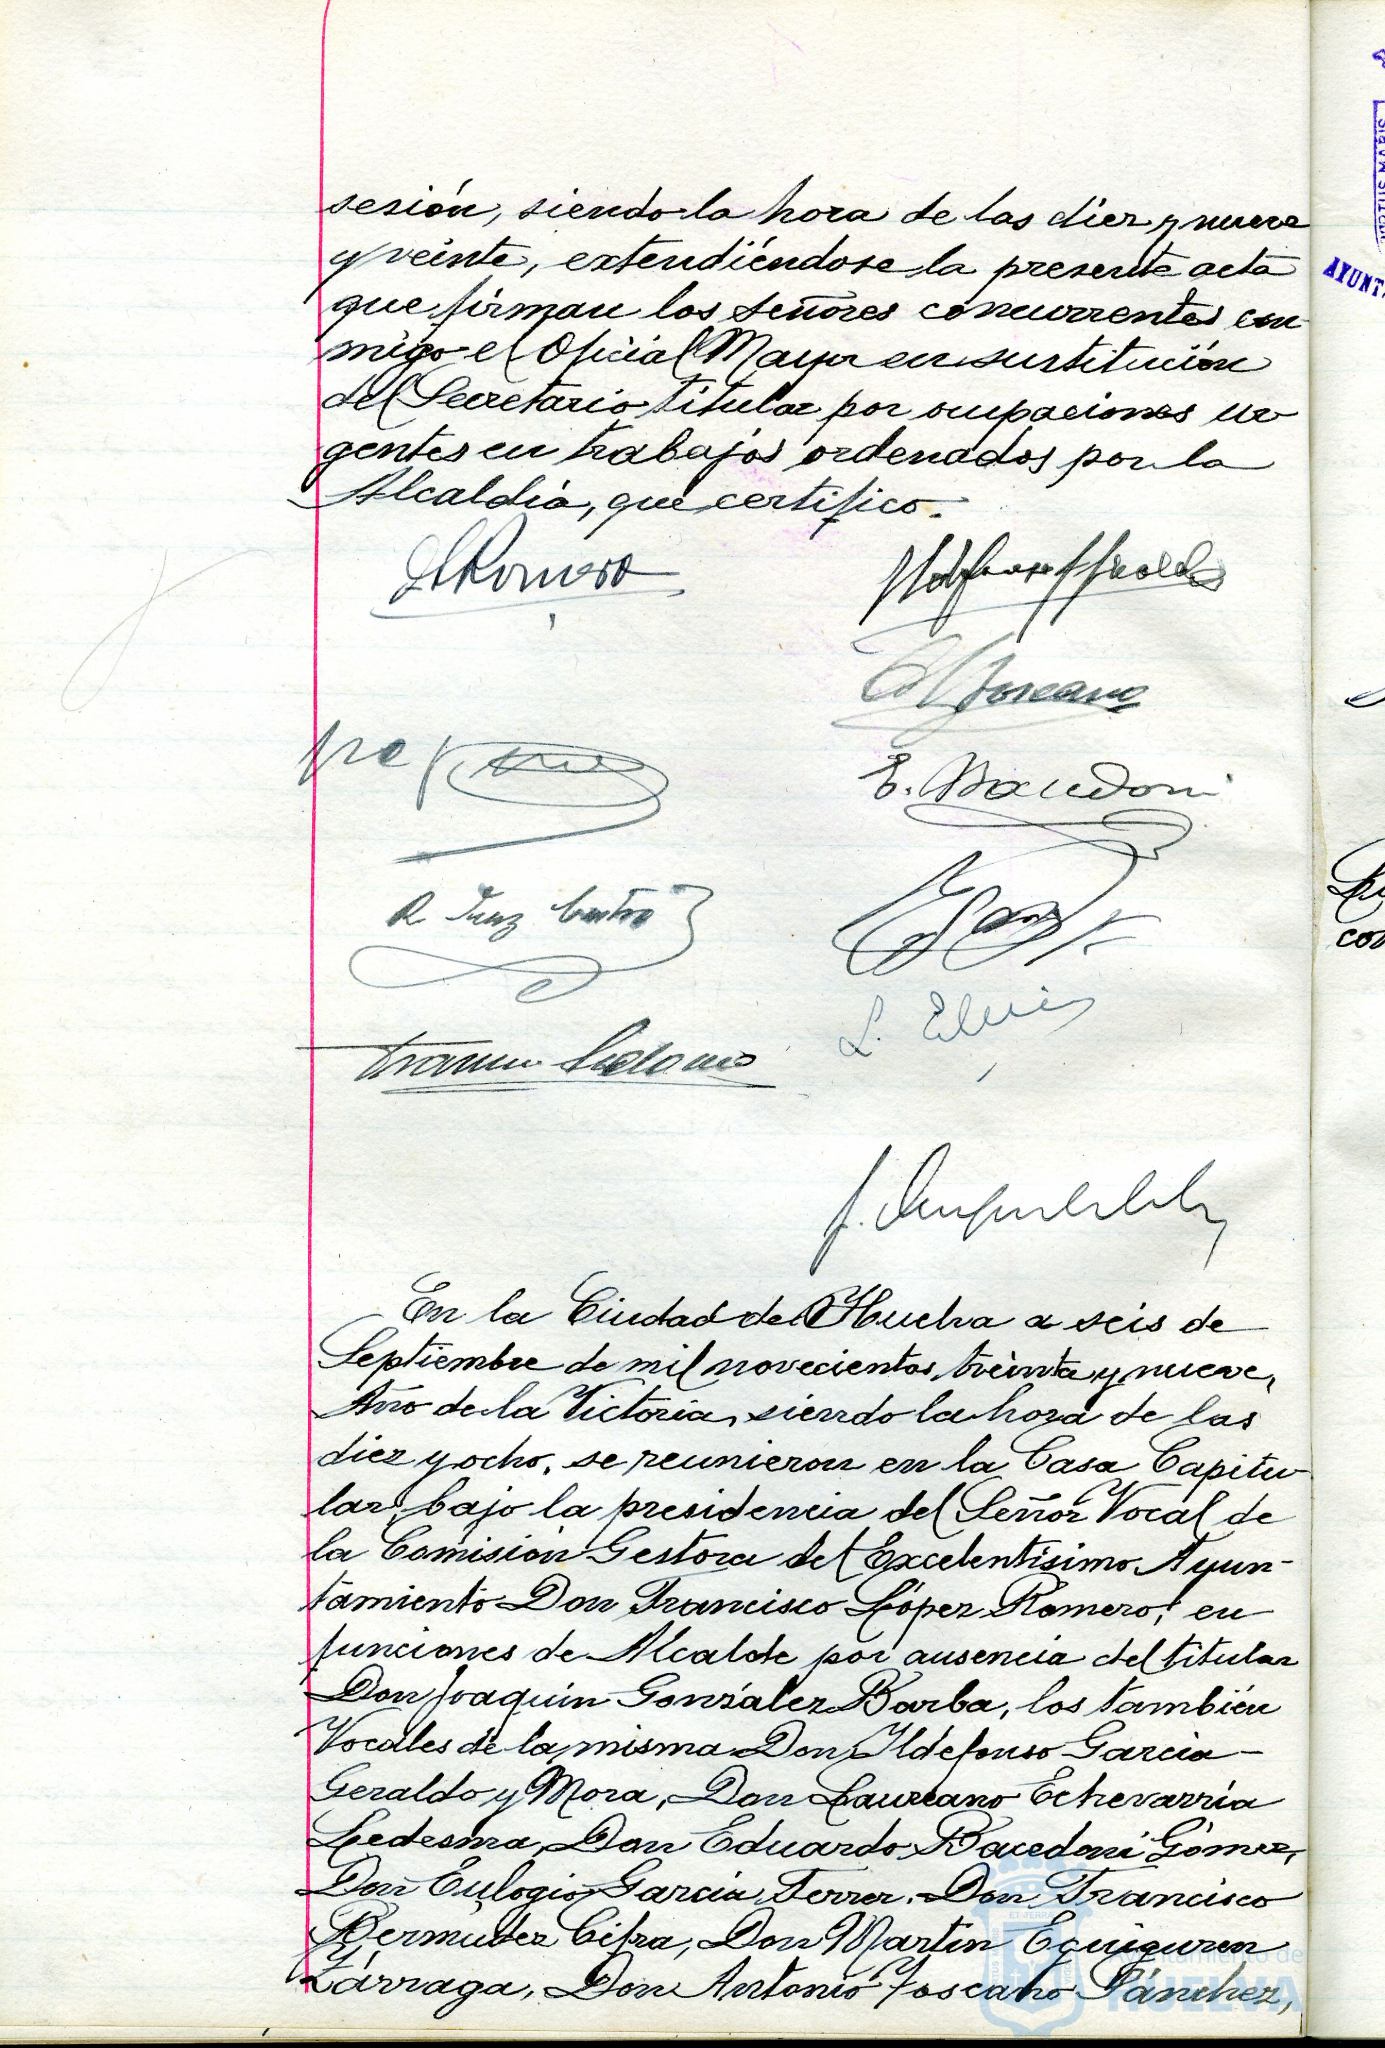 sesión, siendo la hora de las diez y nueve
y veinte, extendiéndose la presente acta
que firman los señores concurrentes con
migo el Oficial Mayor en sustitución
del Secretario titular por ocupaciones ur
gentes en trabajos ordenados por la
Alcaldía, que certifico.
Romero
E. Bacedoni
L. E
En la Ciudad de Huelva a seis de
Septiembre de mil novecientos treinta y nueve,
Año de la Victoria, siendo la hora de las
diez y ocho, se reunieron en la Casa Capitu
lar, bajo la presidencia del Señor Vocal de
la Comisión Gestora del Excelentísimo Ayun-
tamiento Don Francisco López Romero, en
funciones de Alcalde por ausencia del titular
Don Joaquín González Barba, los también
Vocales de la misma Don Ildefonso García-
Geraldo y Mora, Don Laureano Echevarría
Ledesma, Don Eduardo Bacedoni Gómez,
Don Eulogio García Ferrer, Don Francisco
Bermudez Cifra, Don Martín Eguiguren
Zárraga, Don Antonio Toscano Sánchez,
Ayuntamiento de
HUELVA
AYUNT